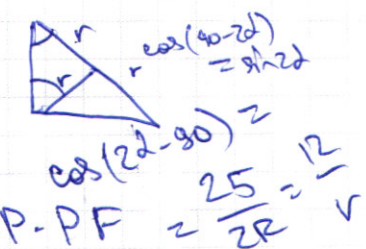 r
r r cos(90-2α)
= sin2α
cos(2α-90) =
P-PF = 25/2R = 12/r